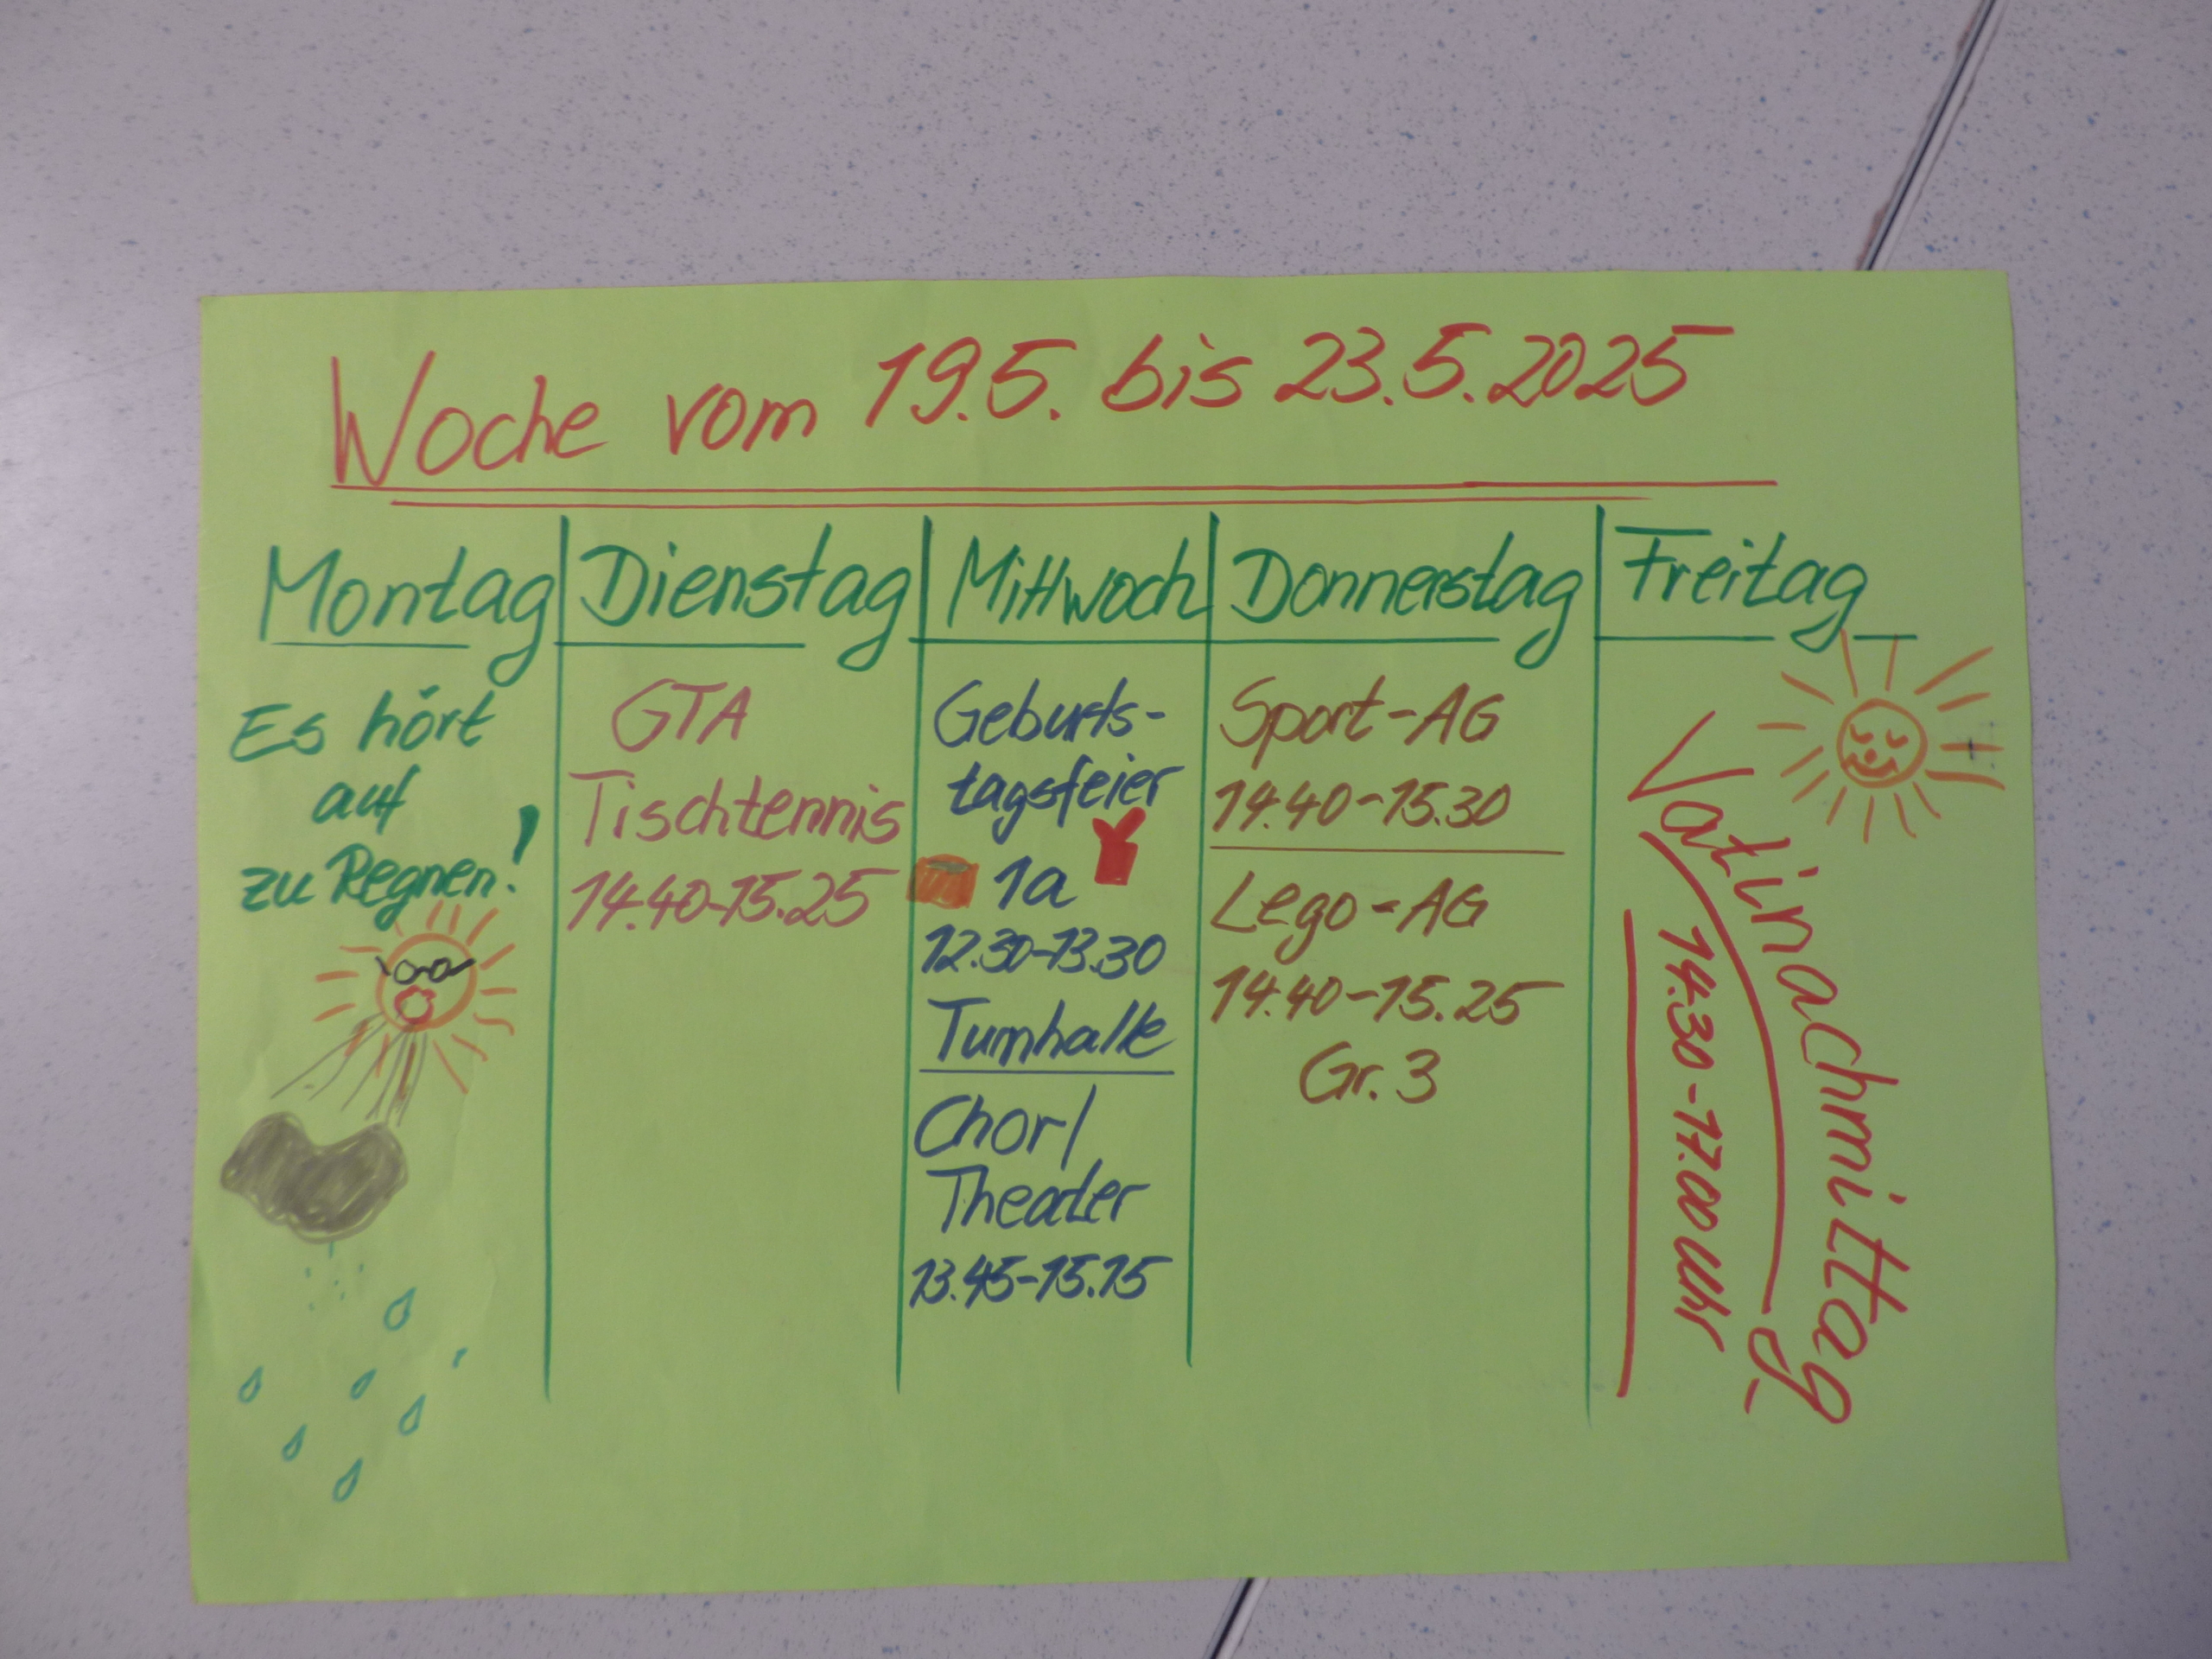 Woche vom 19.5. bis 23.5.2025
Montag
Es hört
auf
zu Regnen!
Dienstag
GTA
Tischtennis
14.40-15.25
Mittwoch
Geburts-
tagsfeier
1a
12.30-13.30
Turnhalle
Chor/
Theater
13.45-15.15
Donnerstag
Sport-AG
14.40-15.30
Lego-AG
14.40-15.25
Gr. 3
Freitag
Vatinachmittag
14.30-17.00 Uhr